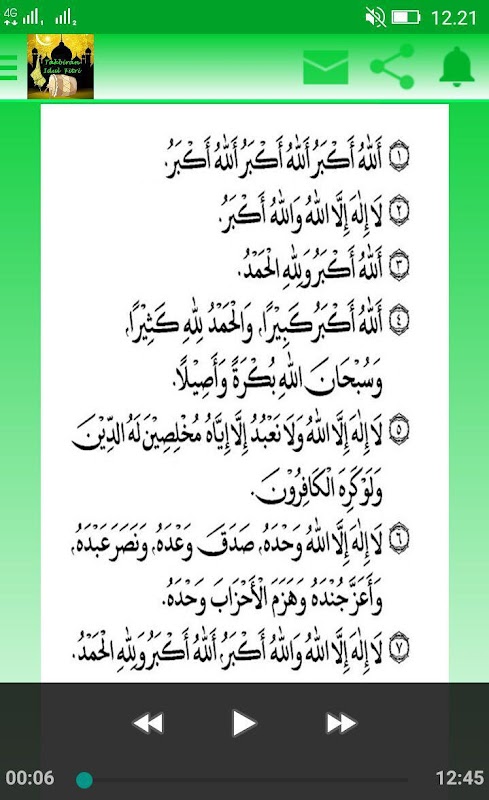 4G 12.21
Takbiran
Idul Fitri
١ اَللهُ أَكْبَرُ اَللهُ أَكْبَرُ اَللهُ أَكْبَرُ.
٢ لَا إِلٰهَ إِلَّا اللهُ وَاللهُ أَكْبَرُ.
٣ اَللهُ أَكْبَرُ وَلِلّٰهِ الْحَمْدُ.
٤ اَللهُ أَكْبَرُ كَبِيْرًا، وَالْحَمْدُ لِلّٰهِ كَثِيْرًا،
وَسُبْحَانَ اللهِ بُكْرَةً وَأَصِيْلًا.
٥ لَا إِلٰهَ إِلَّا اللهُ وَلَا نَعْبُدُ إِلَّا إِيَّاهُ مُخْلِصِيْنَ لَهُ الدِّيْنَ
وَلَوْ كَرِهَ الْكَافِرُوْنَ.
٦ لَا إِلٰهَ إِلَّا اللهُ وَحْدَهُ، صَدَقَ وَعْدَهُ، وَنَصَرَ عَبْدَهُ،
وَأَعَزَّ جُنْدَهُ وَهَزَمَ الْأَحْزَابَ وَحْدَهُ.
٧ لَا إِلٰهَ إِلَّا اللهُ وَاللهُ أَكْبَرُ، اَللهُ أَكْبَرُ وَلِلّٰهِ الْحَمْدُ.
00:06 12:45